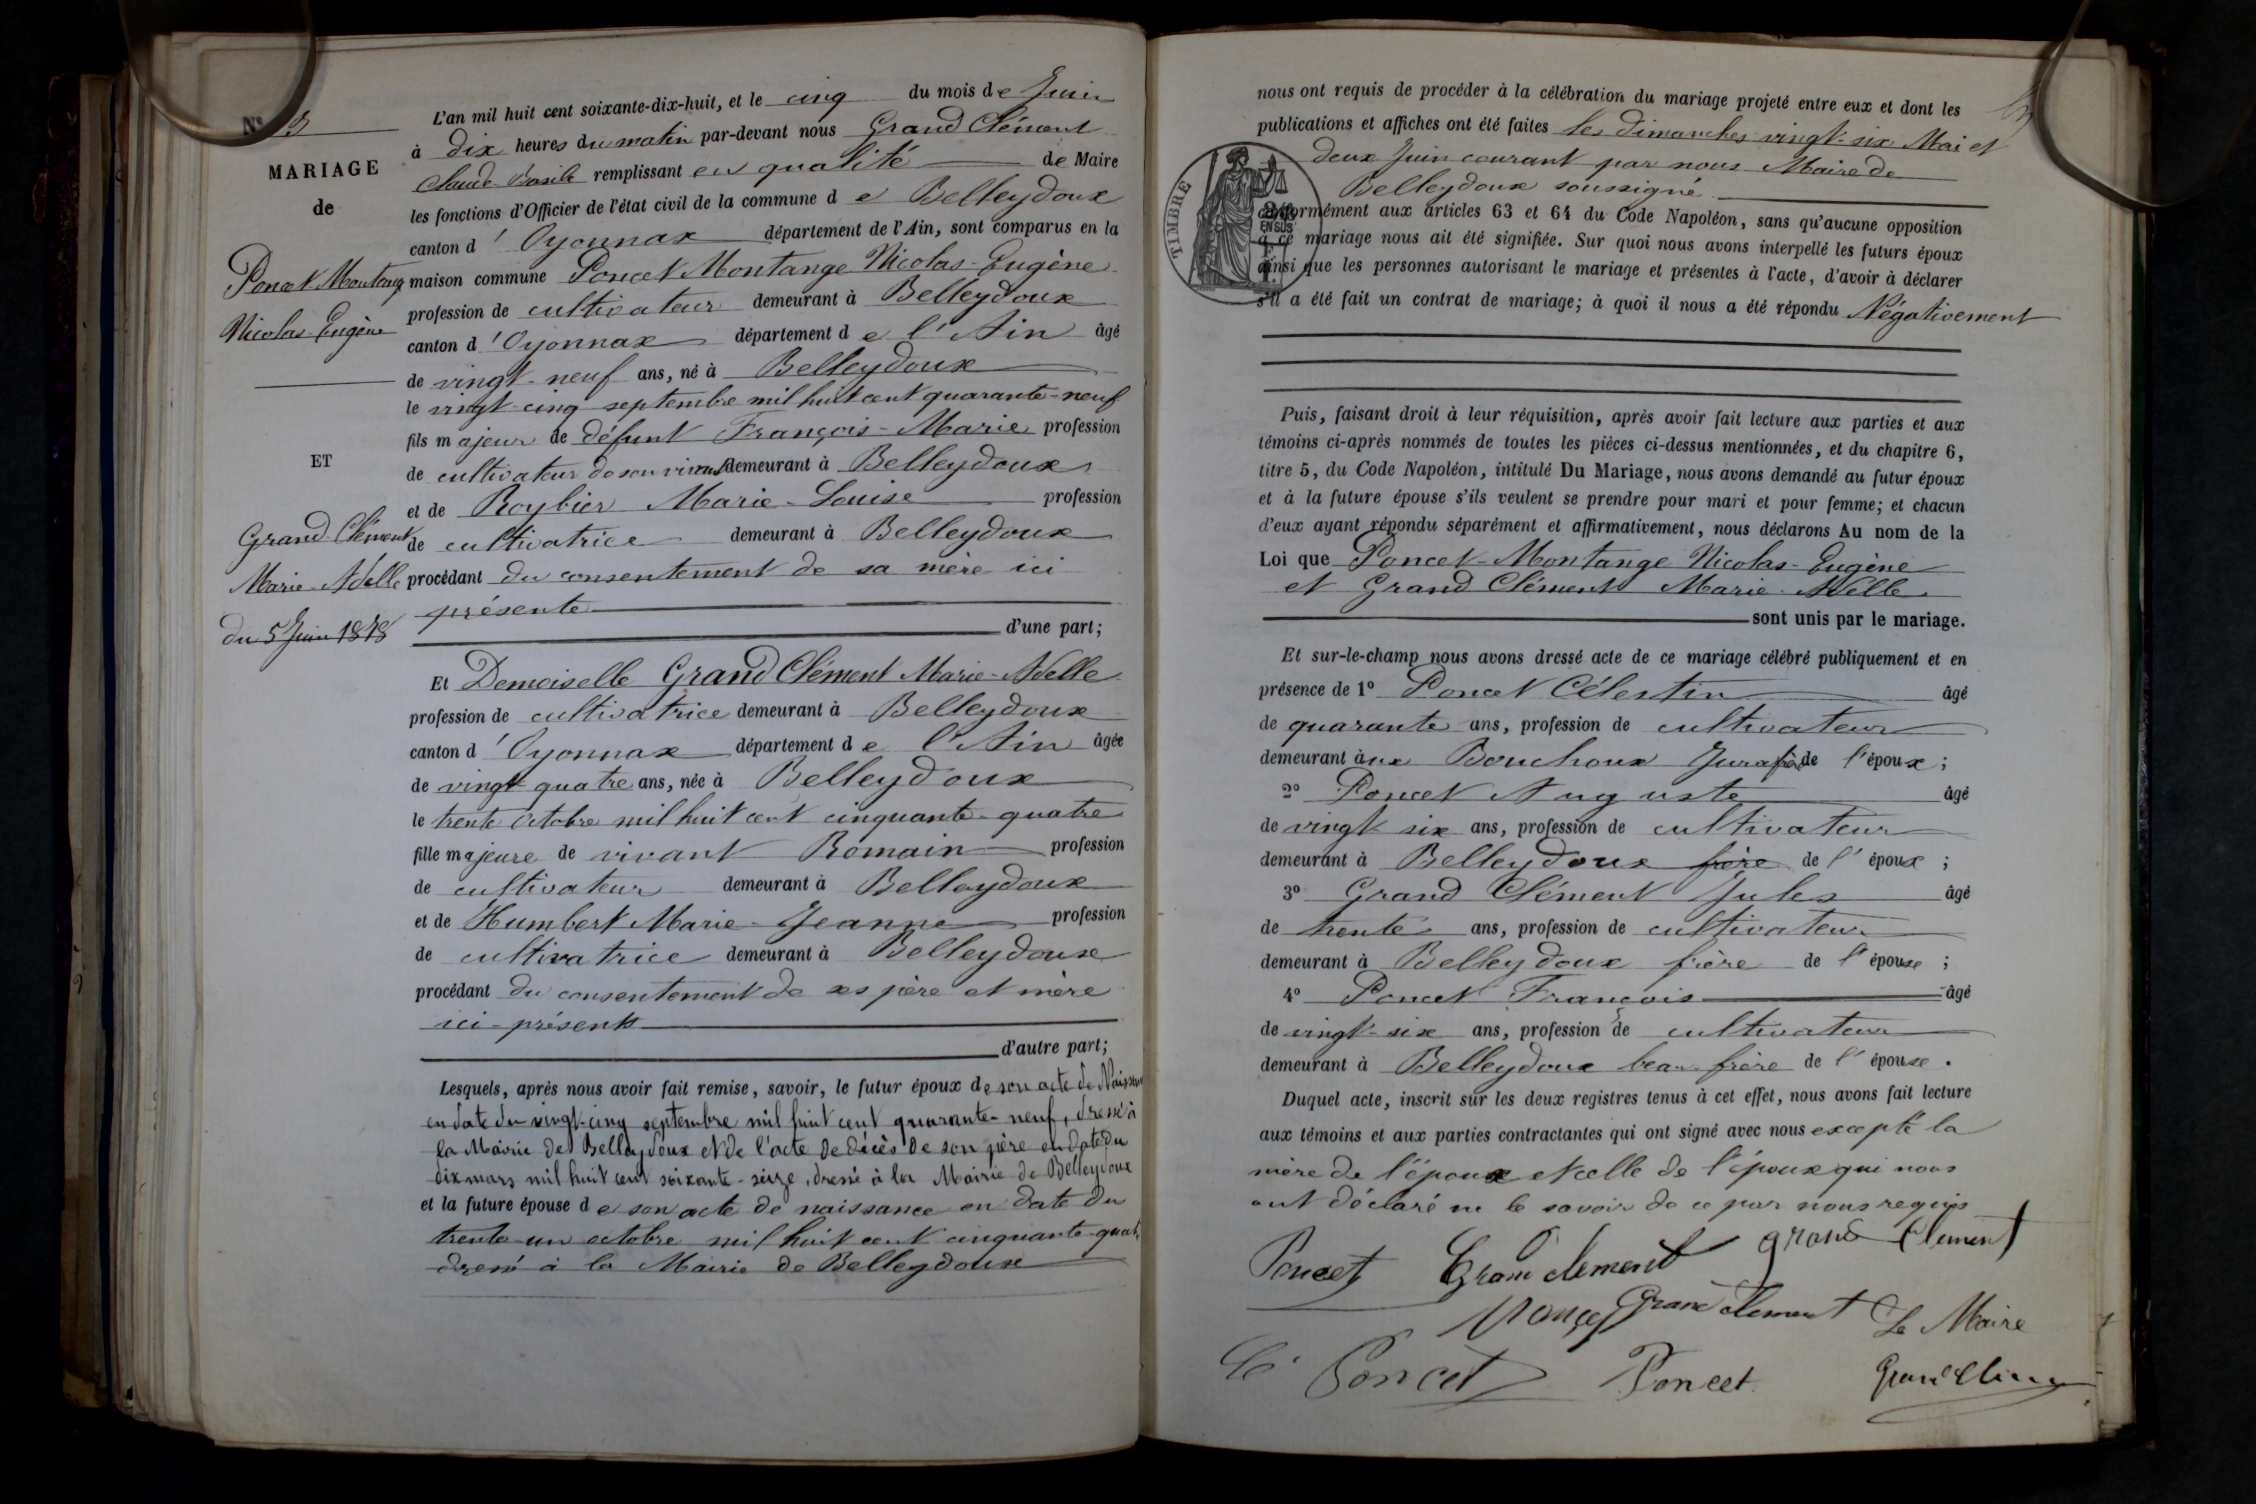 L'an mil huit cent soixante-dix-huit, et le cinq du mois de Juin
à dix heures du matin par-devant nous Grand Clément
Claude-Basile remplissant en qualité de Maire
les fonctions d'Officier de l'état civil de la commune de Belleydoux
canton d'Oyonnax département de l'Ain, sont comparus en la
maison commune Poncet Montange Nicolas-Eugène
profession de cultivateur demeurant à Belleydoux
canton d'Oyonnax département de l'Ain âgé
de vingt-neuf ans, né à Belleydoux
le vingt-cinq septembre mil huit cent quarante-neuf
fils majeur de défunt François-Marie profession
de cultivateur de son vivant demeurant à Belleydoux
et de Roybier Marie-Louise profession
de cultivatrice demeurant à Belleydoux
procédant du consentement de sa mère ici
présente
d'une part;
Et Demoiselle Grand Clément Marie-Adelle
profession de cultivatrice demeurant à Belleydoux
canton d'Oyonnax département de l'Ain âgée
de vingt quatre ans, née à Belleydoux
le trente octobre mil huit cent cinquante-quatre
fille majeure de vivant Romain profession
de cultivateur demeurant à Belleydoux
et de Humbert Marie-Jeanne profession
de cultivatrice demeurant à Belleydoux
procédant du consentement de ses père et mère
ici-présents
d'autre part;
Lesquels, après nous avoir fait remise, savoir, le futur époux de son acte de Naissance
en date du vingt-cinq septembre mil huit cent quarante-neuf, dressé à
la Mairie de Belleydoux et de l'acte de décès de son père en date du
dix mars mil huit cent soixante-seize, dressé à la Mairie de Belleydoux
et la future épouse de son acte de naissance en date du
trente-un octobre mil huit cent cinquante-quatre
dressé à la Mairie de Belleydoux
N°
MARIAGE
de
Poncet Montange
Nicolas-Eugène
ET
Grand-Clément
Marie-Adelle
du 5 Juin 1878
nous ont requis de procéder à la célébration du mariage projeté entre eux et dont les
publications et affiches ont été faites les dimanches vingt-six Mai et
deux Juin courant par nous Maire de
Belleydoux soussigné
TIMBRE
EN SUS
conformément aux articles 63 et 64 du Code Napoléon, sans qu'aucune opposition
à ce mariage nous ait été signifiée. Sur quoi nous avons interpellé les futurs époux
ainsi que les personnes autorisant le mariage et présentes à l'acte, d'avoir à déclarer
s'il a été fait un contrat de mariage; à quoi il nous a été répondu Négativement
Puis, faisant droit à leur réquisition, après avoir fait lecture aux parties et aux
témoins ci-après nommés de toutes les pièces ci-dessus mentionnées, et du chapitre 6,
titre 5, du Code Napoléon, intitulé Du Mariage, nous avons demandé au futur époux
et à la future épouse s'ils veulent se prendre pour mari et pour femme; et chacun
d'eux ayant répondu séparément et affirmativement, nous déclarons Au nom de la
Loi que Poncet-Montange Nicolas-Eugène
et Grand Clément Marie-Adelle
sont unis par le mariage.
Et sur-le-champ nous avons dressé acte de ce mariage célébré publiquement et en
présence de 1° Poncet Célestin âgé
de quarante ans, profession de cultivateur
demeurant aux Bouchoux Jura frère de l'époux;
2° Poncet Auguste âgé
de vingt six ans, profession de cultivateur
demeurant à Belleydoux frère de l'époux;
3° Grand Clément Jules âgé
de trente ans, profession de cultivateur
demeurant à Belleydoux frère de l'épouse;
4° Poncet François âgé
de vingt-six ans, profession de cultivateur
demeurant à Belleydoux beau-frère de l'épouse.
Duquel acte, inscrit sur les deux registres tenus à cet effet, nous avons fait lecture
aux témoins et aux parties contractantes qui ont signé avec nous excepté la
mère de l'époux et celle de l'épouse qui nous
ont déclaré ne le savoir de ce par nous requis
Poncet Grand clement grand Clement
Ponçet Grand clement Le Maire
Cé Poncet Poncet Grand Clément